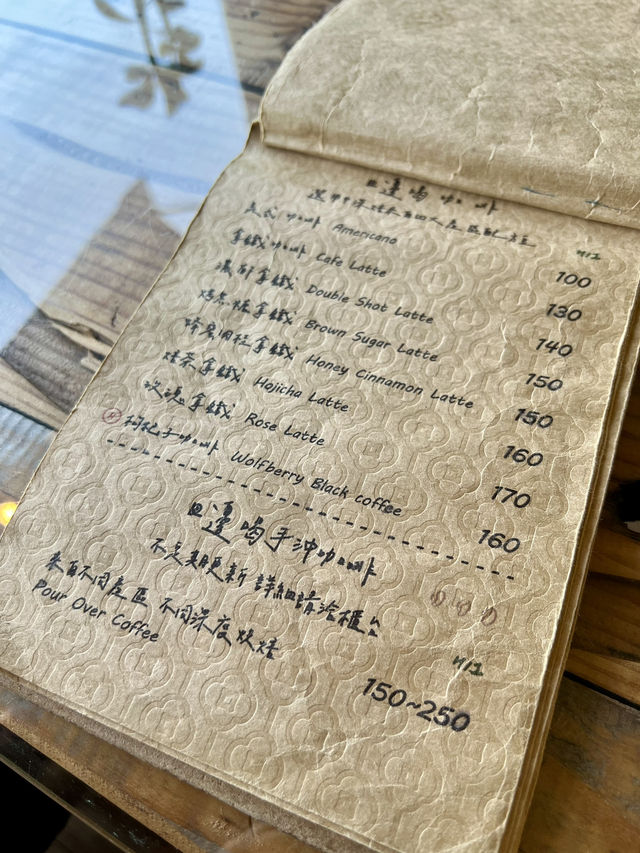 田邊喝咖啡
H/I
美式咖啡 Americano 100
拿鐵咖啡 Cafe Latte 130
拿鐵 Double Shot Latte 140
拿鐵 Brown Sugar Latte 150
蜂蜜肉桂拿鐵 Honey Cinnamon Latte 150
焙茶拿鐵 Hojicha Latte 160
玫瑰拿鐵 Rose Latte 170
枸杞子咖啡 Wolfberry Black coffee 160
田邊喝手沖咖啡
不定期更新 詳細請洽櫃台
來自不同產區 不同深度烘焙
H/I
Pour Over Coffee 150~250